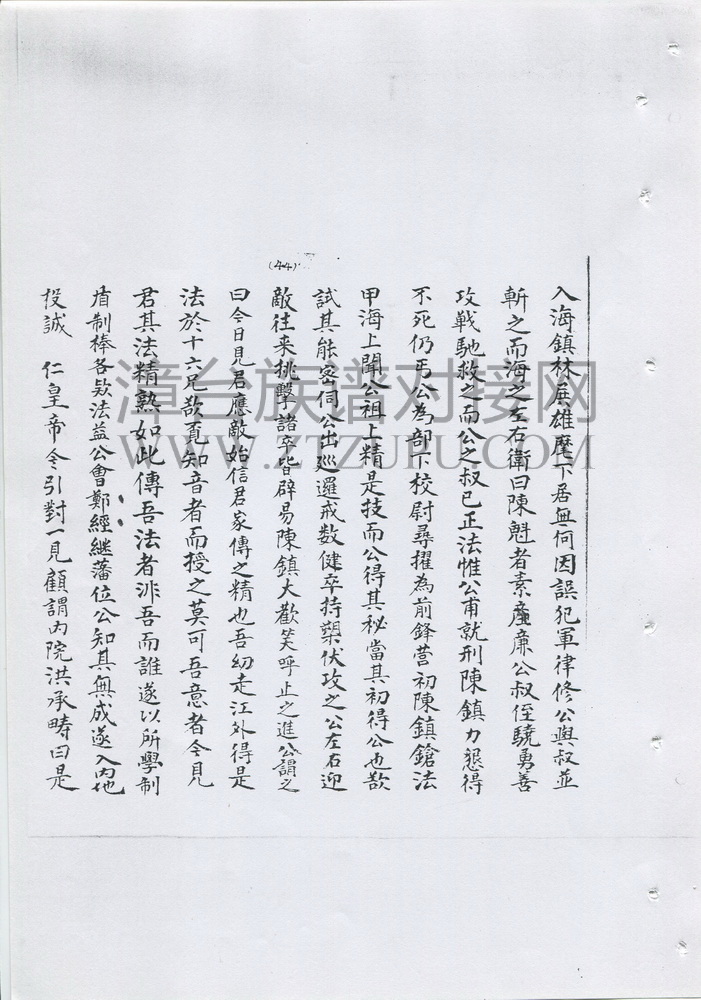 (44)
入海鎮林展雄麾下居無何因誤犯軍律修公與叔並
斬之而海之左右衛曰陳魁者素廉公叔侄驍勇善
攻戰馳救之而公之叔已正法惟公甫就刑陳鎮力懇得
不死仍丐公為部下校尉尋擢為前鋒營初陳鎮鎗法
甲海上聞公祖上精是技而公得其秘當其初得公也欲
試其能密伺公出廵邏戒数健卒持槊伏攻之公左右迎
敵往来挑擊諸卒皆辟易陳鎮大歡笑呼止之進公謂之
曰今日見君應敵始信君家傳之精也吾幼走江外得是
法於十六兄欲覔知音者而授之莫可吾意者今見
君其法精熟如此傳吾法者非吾而誰遂以所學制
盾制棒各欵法益公會鄭經継藩位公知其無成遂入內地
投誠 仁皇帝令引對一見顧謂內院洪承畴曰是
漳台族谱对接网
WWW.ZTZUPU.COM